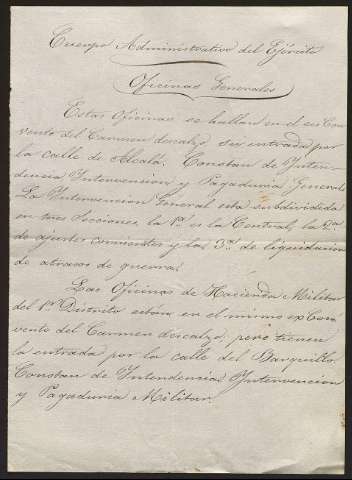 Cuerpo Administrativo del Ejército
Oficinas Generales
Estas Oficinas se hallan en el ex Con
vento del Carmen descalzo su entrada por
la calle de Alcalá. Constan de Inten
dencia Intervencion y Pagaduria General.
La Intervencion General está subdividida
en tres secciones, la 1ª es la Central, la 2ª
de ajustes corrientes y la 3ª de liquidacion
de atrasos de guerra.
Las Oficinas de Hacienda Militar
del 1er Distrito estan en el mismo ex Con
vento del Carmen descalzo, pero tienen
la entrada por la calle del Barquillo
Constan de Intendencia Intervencion
y Pagaduria Militar.